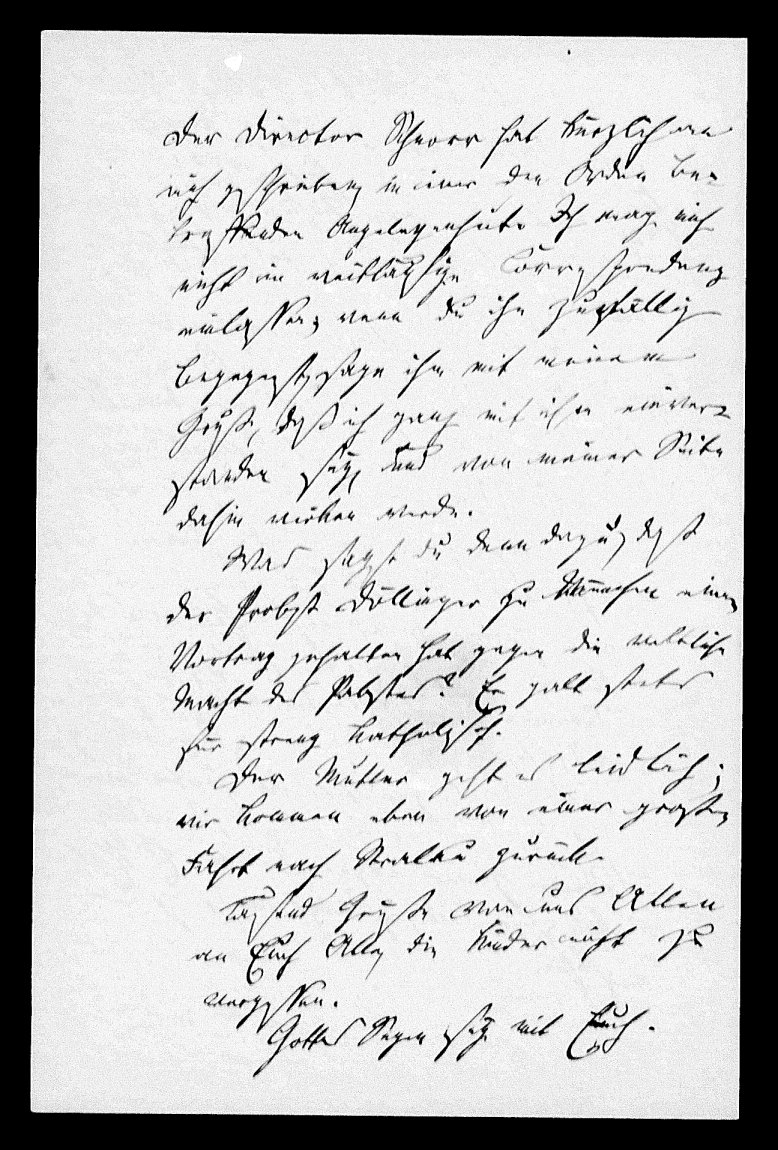 Der Director Schnorr hat kürzlich an
mich geschrieben, in einer den Orden be-
treffenden Angelegenheit. Ich mag mich
nicht in weitläufige Correspondenz
einlassen; wenn du ihn zufällig
begegnest, sage ihm mit meinem
Gruße, daß ich ganz mit ihm einver-
standen sey, und von meiner Seite
dahin wirken werde.
Was sagst du denn dazu, daß
der Probst Döllinger zu München einen
Vortrag gehalten hat gegen die weltliche
Macht des Pabstes? Er galt stets
für streng katholisch.
Der Mutter geht es leidlich;
wir kommen eben von einer großen
Fahrt nach Stralau zurück.
Tausend Grüße von uns Allen
an Euch Alle, die Kinder nicht zu
vergessen.
Gottes Segen sey mit Euch.